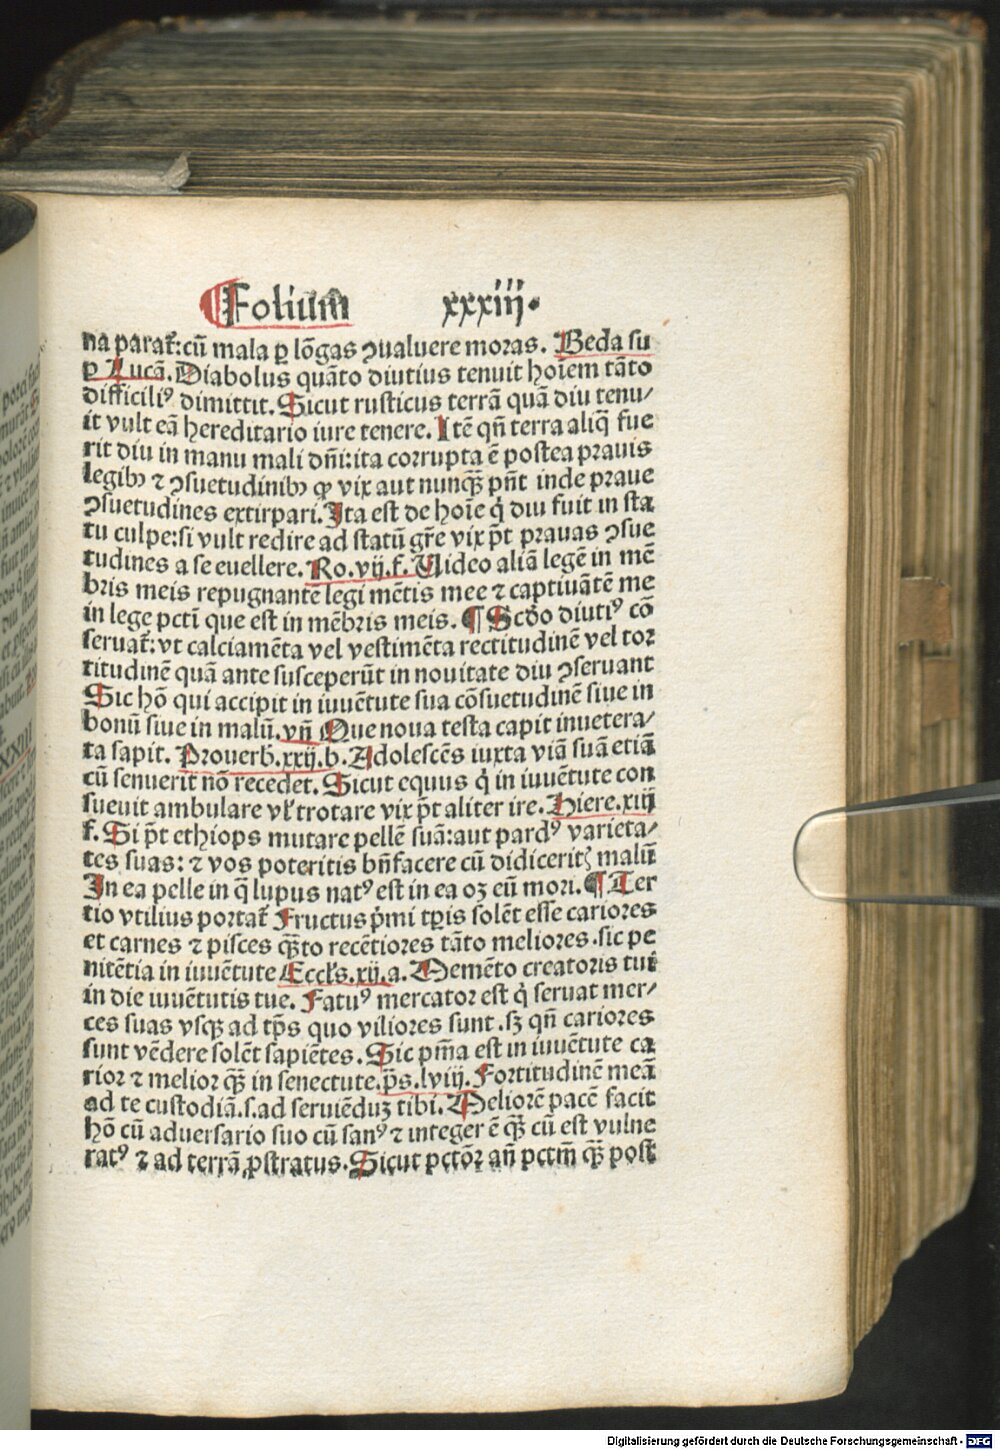 Folium xxxiij.
na parat̃:cũ mala ꝑ lõgas ꝯualuere moras. Beda su
ꝑ Lucã. Diabolus quãto diutius tenuit hoĩem tãto
difficiliꝰ dimittit. Sicut rusticus terrã quã diu tenu/
it vult eã hereditario iure tenere. Itẽ qñ terra aliq̃ fue
rit diu in manu mali dñi:ita corrupta ẽ postea prauis
legibꝫ ⁊ ꝯsuetudinibꝫ ꝙ vix aut nunqꝫ̃ pñt inde praue
ꝯsuetudines extirpari. Ita est de hoĩe q̇ diu fuit in sta
tu culpe:si vult redire ad statũ gr̃e vix p̃t prauas ꝯsue
tudines a se euellere. Ro.vij.f. Uideo aliã legẽ in mẽ
bris meis repugnantẽ legi mẽtis mee ⁊ captiuãtẽ me
in lege pcti que est in mẽbris meis. ¶ Scđo diutiꝰ cõ
seruat̃:vt calciamẽta vel vestimẽta rectitudinẽ vel tor
titudinẽ quã ante susceperũt in nouitate diu ꝯseruant
Sic hõ qui accipit in iuuẽtute sua cõsuetudinẽ siue in
bonũ siue in malũ.vñ Que noua testa capit inuetera/
ta sapit. Prouerb̃.xxij.b. Adolescẽs iuxta viã suã etiã
cũ senuerit nõ recedet. Sicut equus q̇ in iuuẽtute con
sueuit ambulare vl̃ trotare vix p̃t aliter ire. Hiere.xiij
f. Si p̃t ethiops mutare pellẽ suã:aut pardꝰ varieta/
tes suas: ⁊ vos poteritis bñfacere cũ didiceritꝭ malũ
In ea pelle in q̃ lupus natꝰ est in ea oꝫ eũ mori. ¶ Ter
tio vtilius portat̃ Fructus p̃mi tꝑis solẽt esse cariores
et carnes ⁊ pisces qꝫ̃to recẽtiores tãto meliores.sic pe
nitẽtia in iuuẽtute Eccl̃s.xij.a. Memẽto creatoris tui
in die iuuẽtutis tue. Fatuꝰ mercator est q̇ seruat mer/
ces suas vsqꝫ ad tp̃s quo viliores sunt.sꝫ qñ cariores
sunt vẽdere solẽt sapiẽtes. Sic pm̃a est in iuuẽtute ca
rior ⁊ melior qꝫ̃ in senectute.p̃s.lviij. Fortitudinẽ meã
ad te custodiã.s.ad seruiẽduꝫ tibi. Meliorẽ pacẽ facit
hõ cũ aduersario suo cũ sanꝰ ⁊ integer ẽ qꝫ̃ cũ est vulne
ratꝰ ⁊ ad terrã ꝓstratus. Sicut pctõr añ pctm̃ qꝫ̃ post
Digitalisierung gefördert durch die Deutsche Forschungsgemeinschaft - DFG